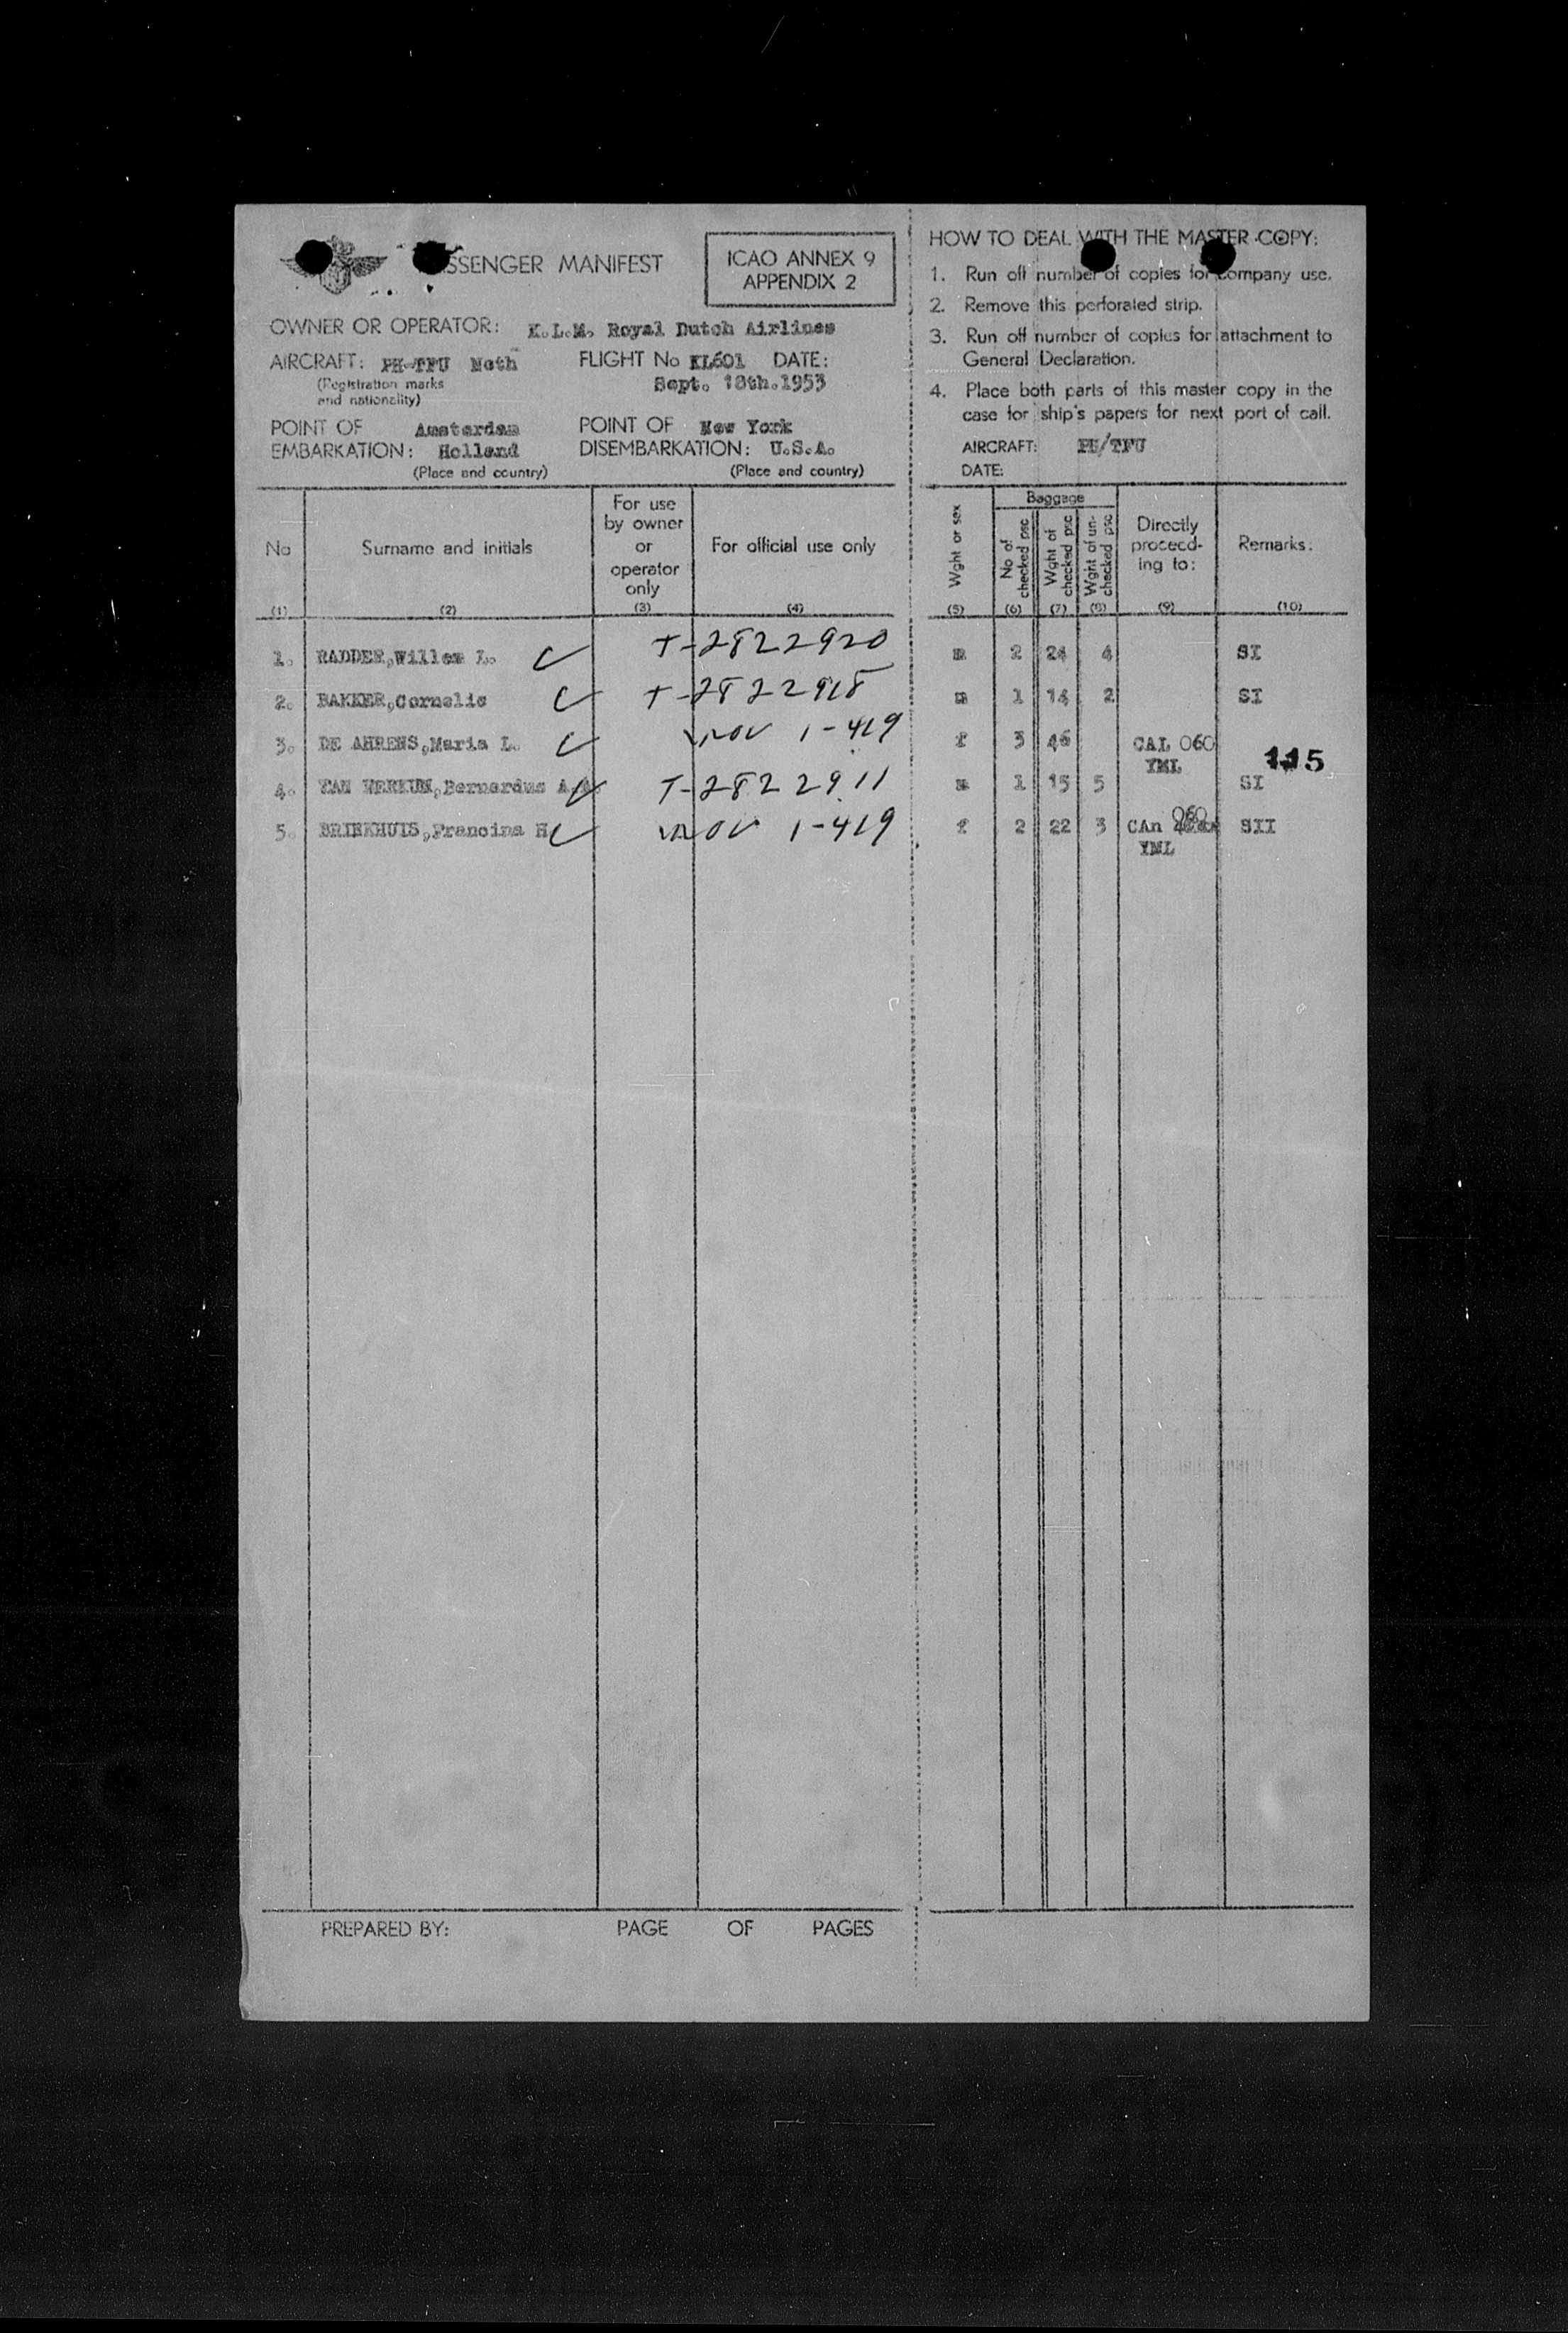 PASSENGER MANIFEST
ICAO ANNEX 9
APPENDIX 2
OWNER OR OPERATOR: K.L.M. Royal Dutch Airlines
AIRCRAFT: PH-TPU Neth FLIGHT No KL601 DATE:
(Registration marks and nationality) Sept. 18th.1953
POINT OF EMBARKATION: Amsterdam Holland
(Place and country)
POINT OF DISEMBARKATION: New York U.S.A.
(Place and country)
HOW TO DEAL WITH THE MASTER COPY:
1. Run off number of copies for company use.
2. Remove this perforated strip.
3. Run off number of copies for attachment to
General Declaration.
4. Place both parts of this master copy in the
case for ship's papers for next port of call.
AIRCRAFT: PH/TPU
DATE:
No (1)
Surname and initials (2)
For use by owner or operator only (3)
For official use only (4)
Wght or sex (5)
Baggage
No of checked psc (6)
Wght of checked psc (7)
Wght of un-checked psc (8)
Directly proceed-ing to: (9)
Remarks: (10)
1. RADDER,Willem L. T-2822920 m 2 24 4 SI
2. BAKKER,Cornelis T-2822918 m 1 14 2 SI
3. DE AHRENS,Maria L. 1-419 f 3 46 CAL 060 YML
115
4. Bernardus T-2822911 m 1 15 5 SI
5. BRIEKHUIS,Francina H. 1-419 f 2 22 3 CAn 060 YML SII
PREPARED BY: PAGE OF PAGES